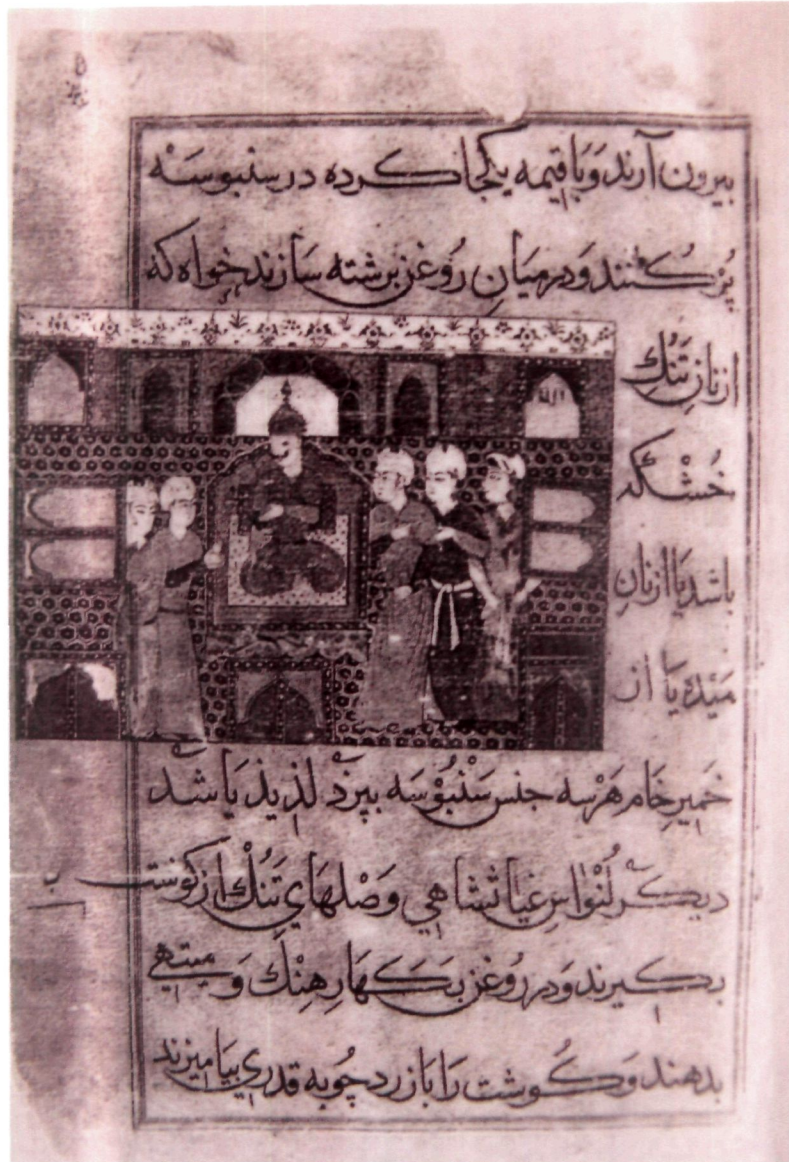 بیرون آرند وَبَا قیمه یکجا کرده در سنبوسَهْ
پُرْ کُنند وَدر میَانِ رُوغن برشته سَازند خواه که
از نانِ تَنُكِ
خُشْکه
باشد یَا از نانِ
میْدَه یَا از
خَمیرِ خَام هَرْسه جنس سَنْبُوْسَه بپزدْ لذیذ بَاشَد
دیگر لُنْوَاسِ غیاثشاهي وَصْلهَايِ تَنُكْ از کوشت
بکیرند وَدر رُوغن بَکهَارِ هِنْك وَمیتهي
بدهند وَکُوشت رَا با زرد چُوبه قدري بیَامیزند